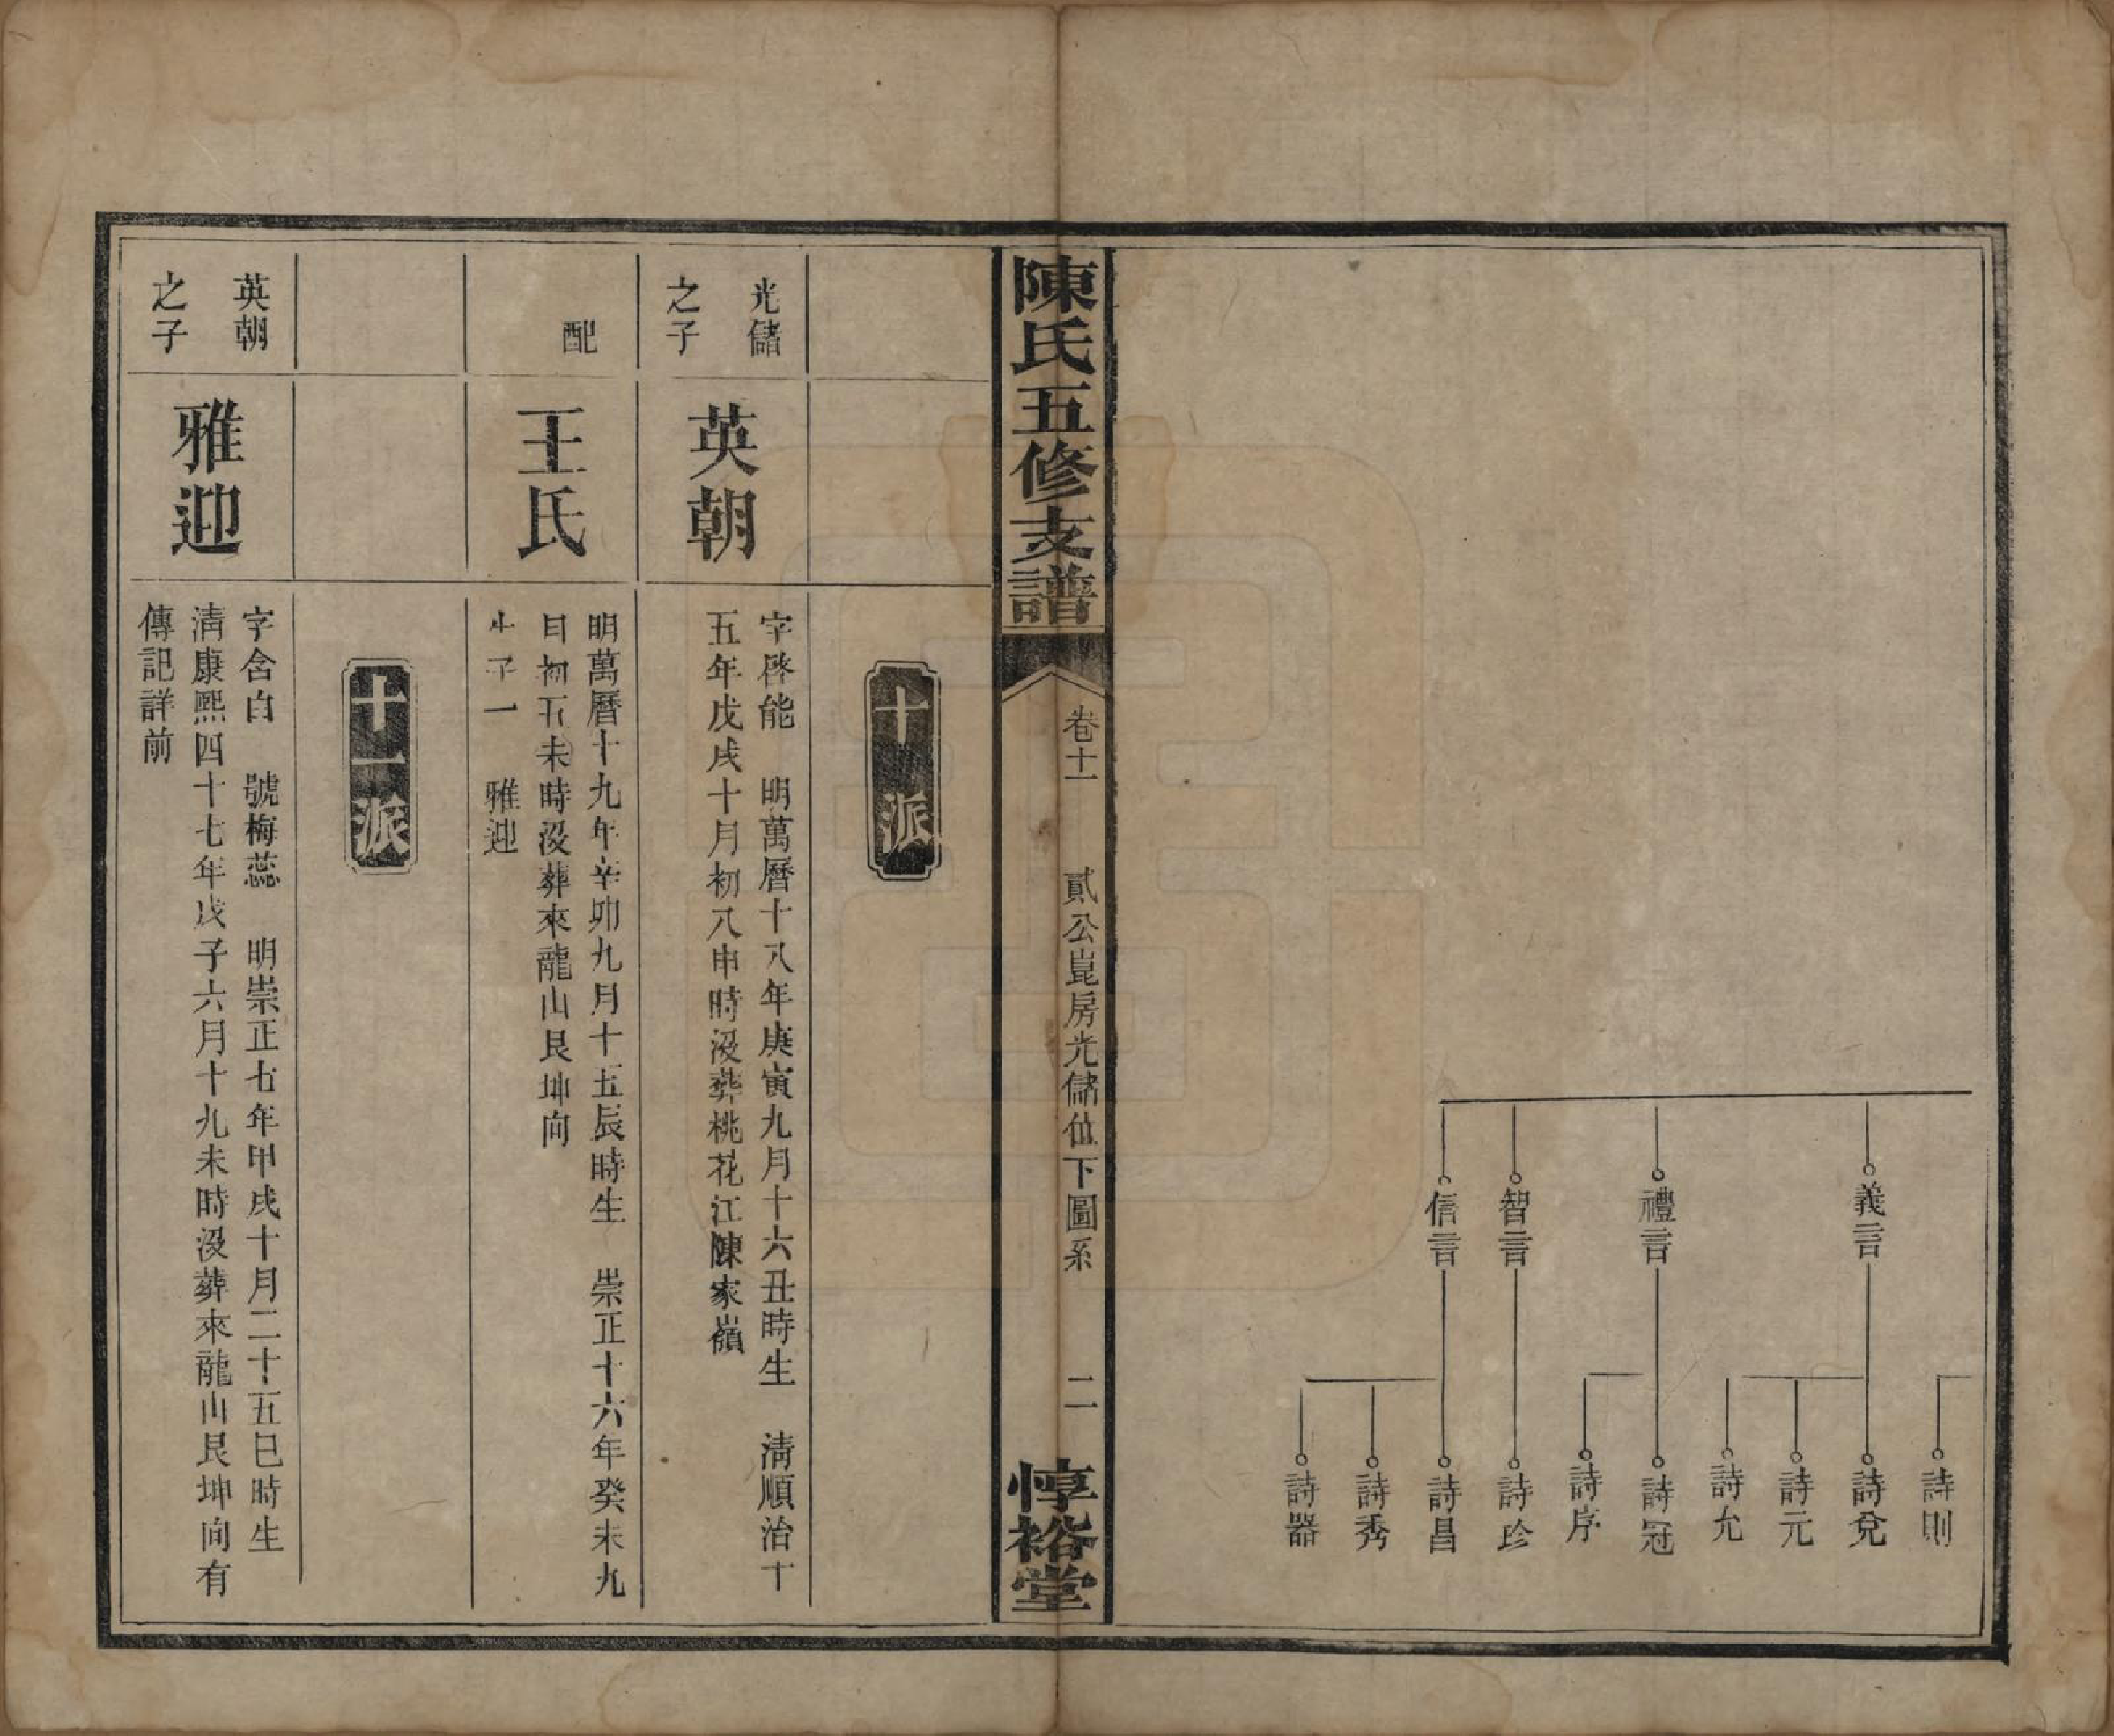 義言
禮言
智言
信言
詩則
詩兌
詩元
詩允
詩冠
詩序
詩珍
詩昌
詩秀
詩器
陳氏五修支譜
卷十一
貳公崑房光儲位下圖系
二
惇裕堂
十派
光儲
之子
英朝
字啓能　明萬曆十八年庚寅九月十六丑時生　淸順治十
五年戊戌十月初八申時沒葬桃花江陳家嶺
配
王氏
明萬曆十九年辛卯九月十五辰時生　崇正十六年癸未九
日初五未時沒葬來龍山艮坤向
生子一　雅迎
十一派
英朝
之子
雅迎
字含白　號梅蕊　明崇正七年甲戌十月二十五巳時生
淸康熙四十七年戊子六月十九未時沒葬來龍山艮坤向有
傳記詳前